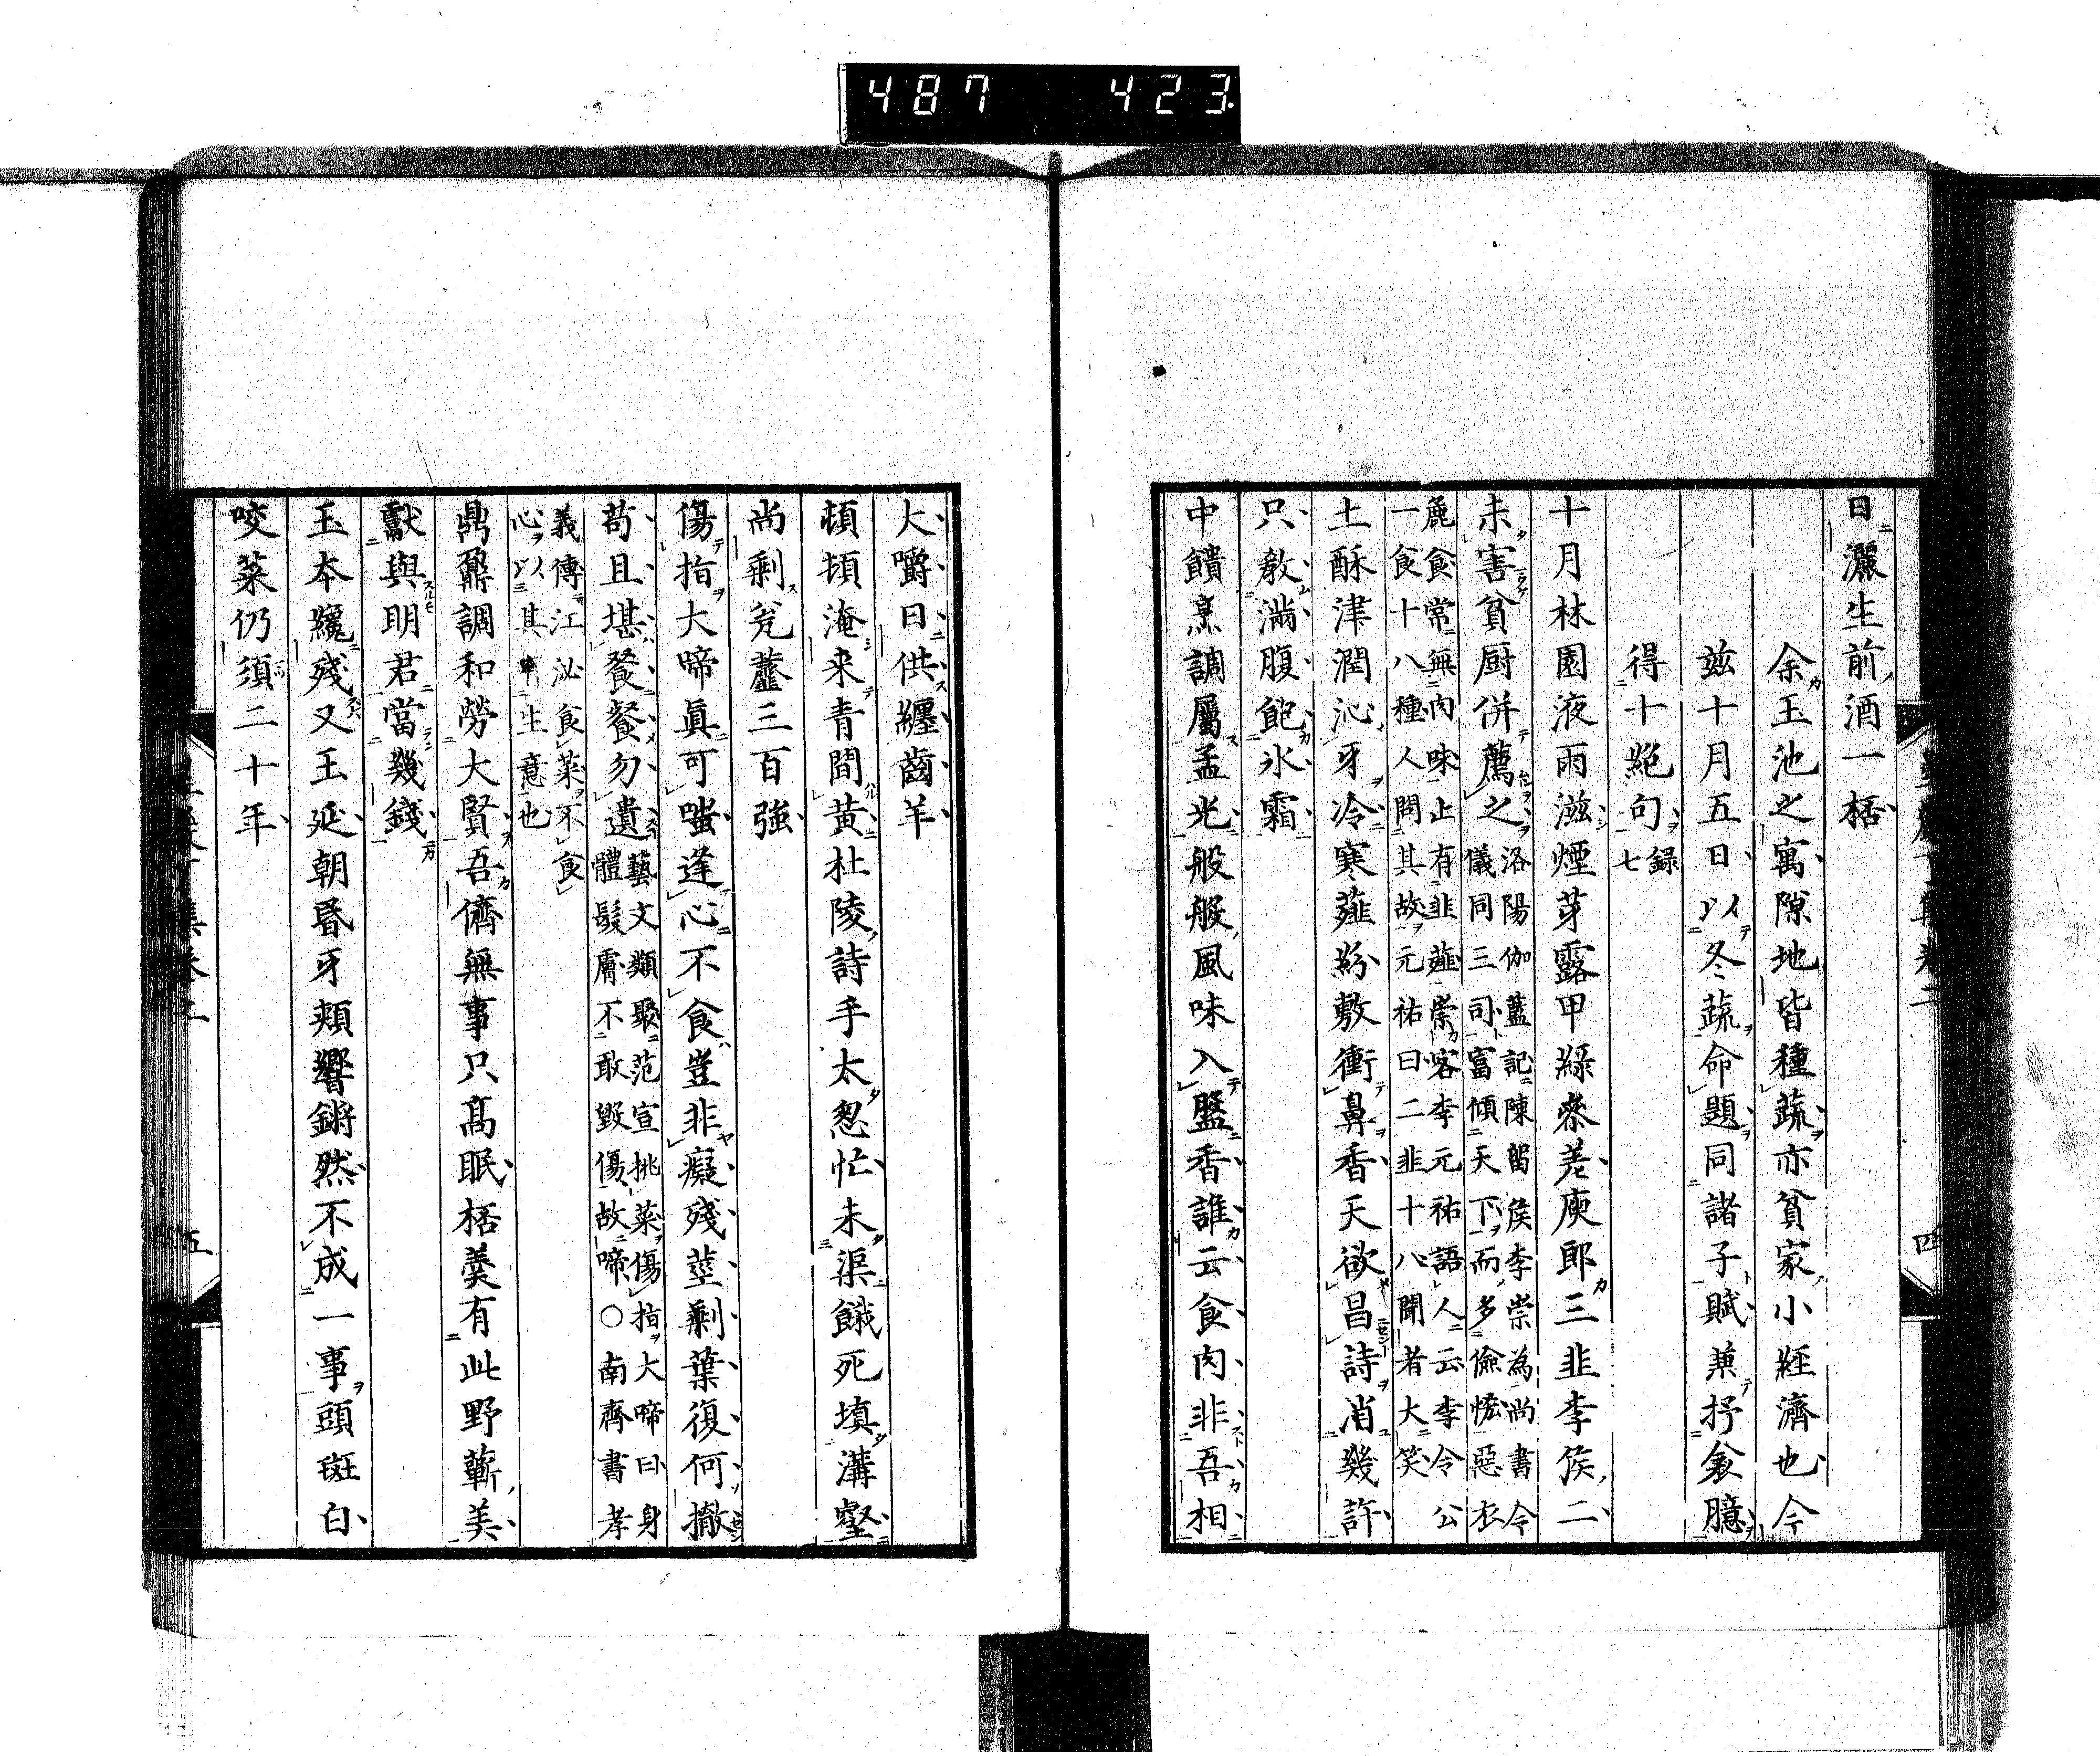 487 423
日灑生前酒一桮
余玉池之寓隙地皆種蔬亦貧家小経濟也今
茲十月五日以冬蔬命題同諸子賦兼抒衾臆
得十絶句録七
十月林園液雨滋煙芽露甲綠參差庾郎三韭李侯二
未害貧厨併薦之洛陽伽藍記陳留侯李崇為尚書令
儀同三司富傾天下而多儉悋惡衣
麁食常無肉味止有韭薤崇客李元祐語人云李令公
一食十八種人問其故元祐曰二韭十八聞者大笑
土酥津潤沁牙冷寒薤紛敷衝鼻香天欲昌詩消幾許
只教滿腹飽氷霜
中饋烹調屬孟光般般風味入盤香誰云食肉非吾相
四
大嚼日供纏齒羊
頓頓淹来青間黄杜陵詩手太怱忙未渠餓死填溝壑
尚剩瓮虀三百強
傷指大啼眞可嗤逢心不食豈非癡殘莖剰葉復何撤
苟且堪餐餐勿遺藝文類聚范宣挑菜傷指大啼曰身
體髮膚不敢毀傷故啼○南齊書孝
義傳江泌食菜不食
心以其有生意也
鼎鼐調和勞大賢吾儕無事只高眠桮羹有此野蘄美
獻與明君當幾錢
玉本纔殘又玉延朝昏牙頰響鏘然不成一事頭斑白
咬菜仍須二十年
五